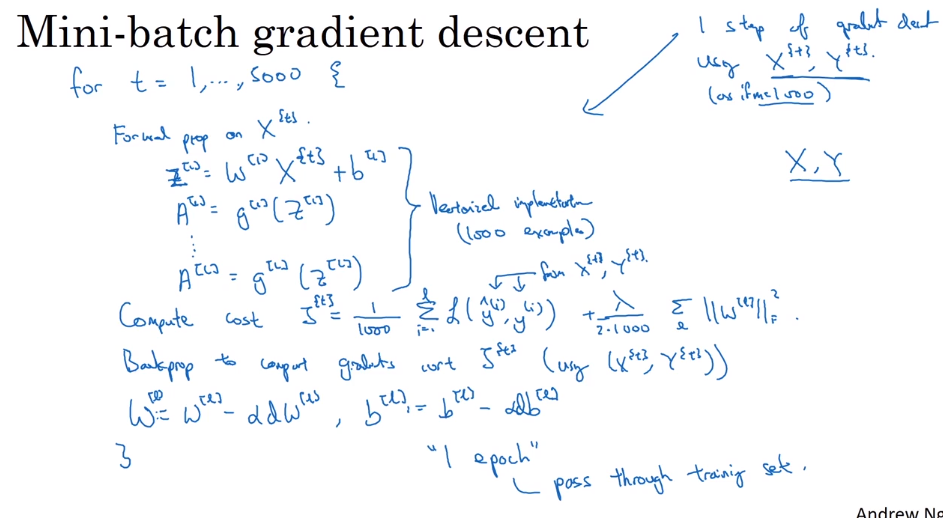 Mini-batch gradient descent
1 step of gradient descent
using X^{t}, Y^{t}.
(as if m=1000)
for t = 1,...,5000 {
Forward prop on X^{t}.
Z^[1] = W^[1] X^{t} + b^[1]
A^[1] = g^[1](Z^[1])
⋮
A^[L] = g^[L](Z^[L])
Vectorized implementation
(1000 examples)
X, Y
from X^{t}, Y^{t}.
Compute cost J^{t} = 1/1000 Σ_{i=1}^{l} L(ŷ^(i), y^(i)) + λ/2·1000 Σ_l ||W^[l]||_F^2.
Backprop to compute gradients wrt J^{t} (using (X^{t}, Y^{t}))
W^[l] := W^[l] - αdW^[l], b^[l] := b^[l] - αdb^[l]
}
"1 epoch"
pass through training set.
Andrew Ng